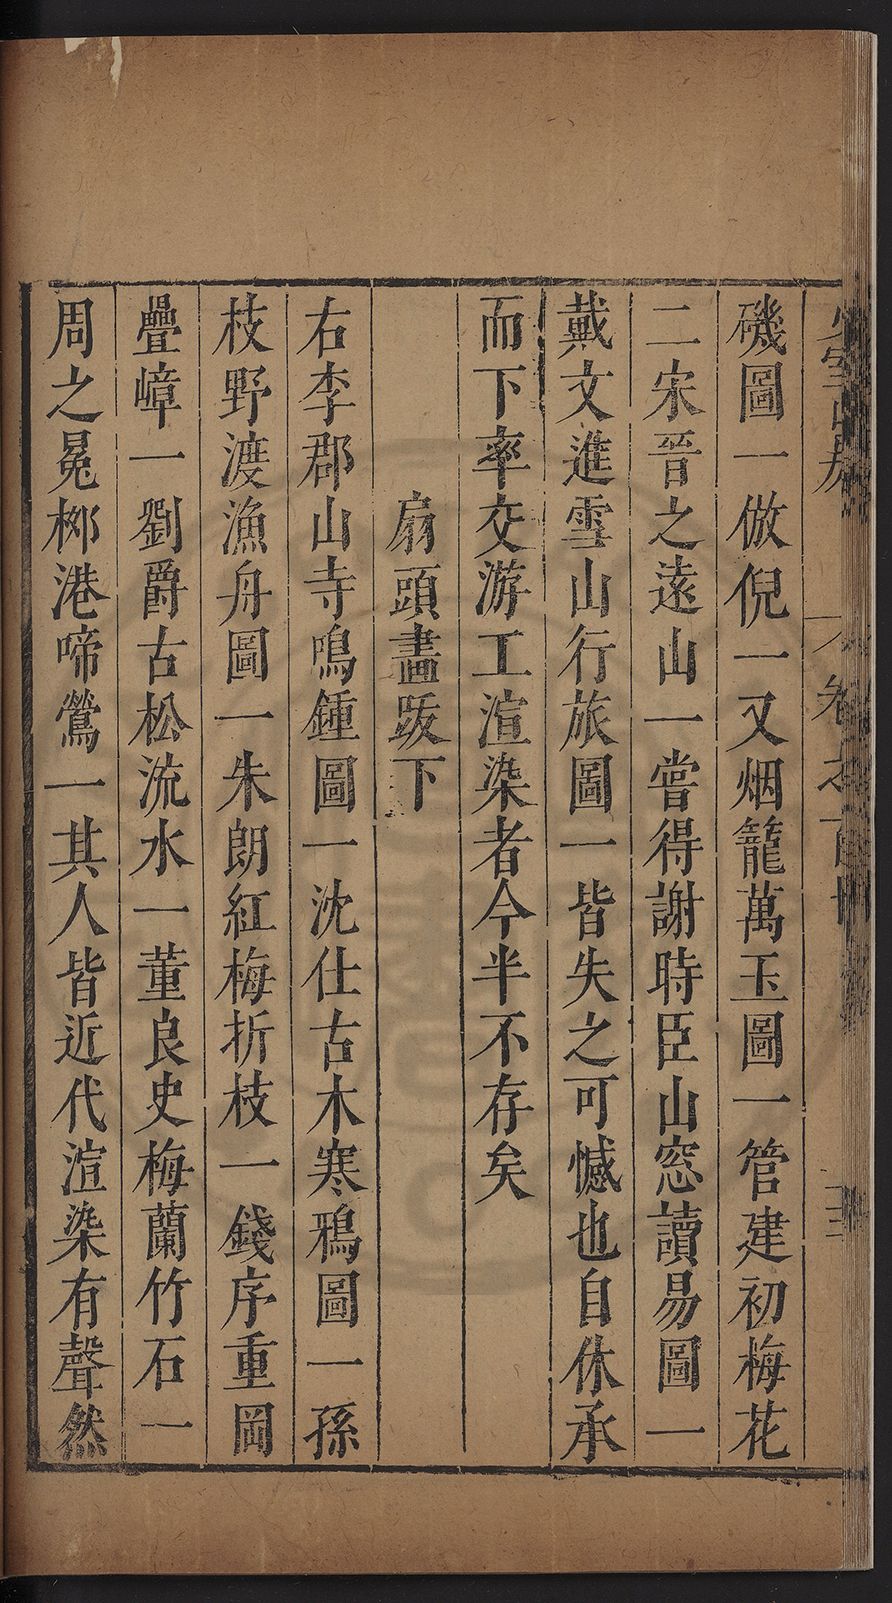 磯圖一倣倪一又烟籠萬玉圖一管建初梅花
二宋晉之遠山一嘗得謝時臣山窓讀易圖一
戴文進雪山行旅圖一皆失之可憾也自休承
而下率交游工渲染者今半不存矣
扇頭畫跋下
右李郡山寺鳴鍾圖一沈仕古木寒鴉圖一孫
枝野渡漁舟圖一朱朗紅梅折枝一錢序重岡
疊嶂一劉爵古松流水一董良史梅蘭竹石一
周之冕桺港啼鶯一其人皆近代渲染有聲然